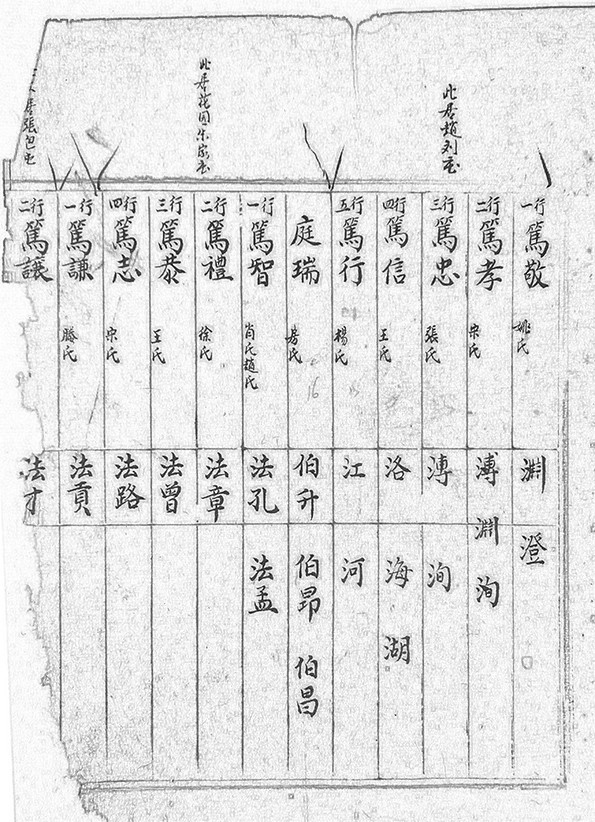 此居趙刘屯
此居花园朱家屯
居張包屯
一行 篤敬 姚氏 淵 澄
二行 篤孝 宋氏 溥 淵 洵
三行 篤忠 張氏 漙 洵
四行 篤信 王氏 洛 海 湖
五行 篤行 楊氏 江 河
庭瑞 房氏 伯升 伯昂 伯昌
一行 篤智 肖氏趙氏 法孔 法孟
二行 篤禮 徐氏 法章
三行 篤恭 王氏 法曾
四行 篤志 宋氏 法路
一行 篤謙 滕氏 法貢
二行 篤讓 法才
16